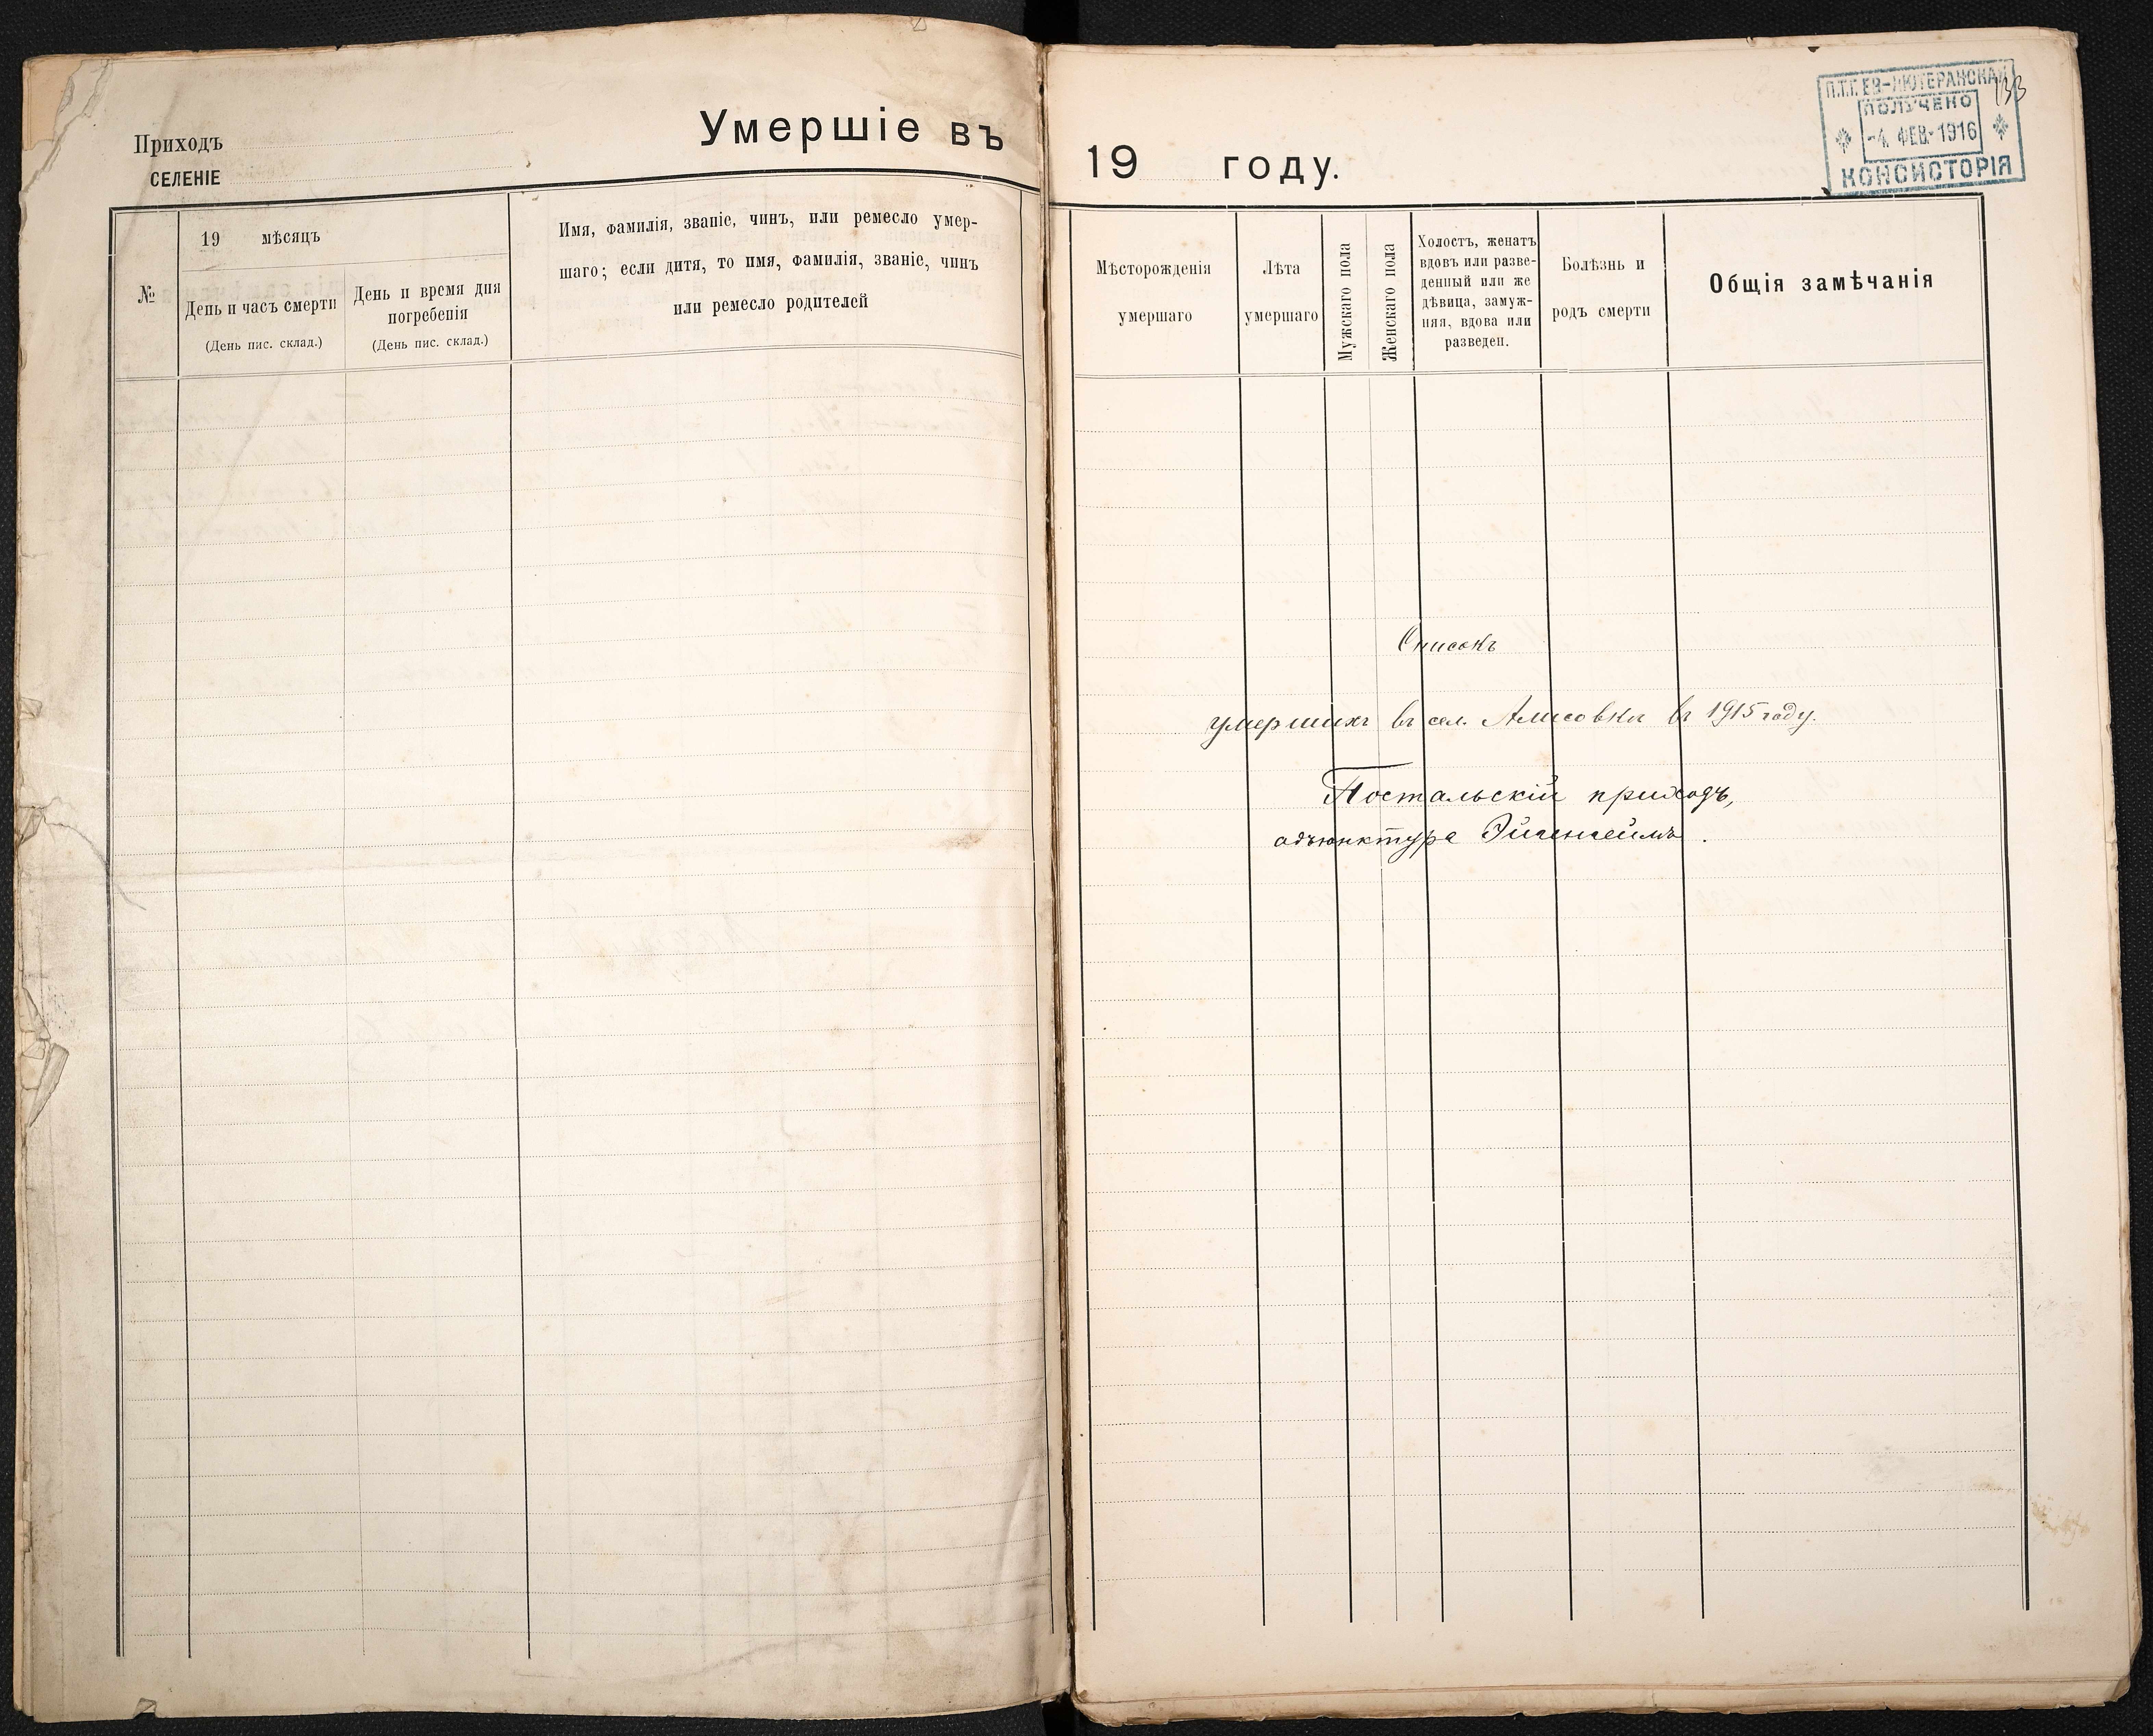 Приходъ
СЕЛЕНІЕ
Умершіе въ
19 году.
П.Т.Г. ЕВ-ЛЮТЕРАНСКАЯ
ПОЛУЧЕНО
-4. ФЕВ. 1916
КОНСИСТОРІЯ
133
№
19 мѣсяцъ
День и часъ смерти
(День пис. склад.)
День и время дня
погребенія
(День пис. склад.)
Имя, фамилія, званіе, чинъ, или ремесло умер-
шаго; если дитя, то имя, фамилія, званіе, чинъ
или ремесло родителей
Мѣсторожденія
умершаго
Лѣта
умершаго
Мужскаго пола
Женскаго пола
Холостъ, женатъ
вдовъ или разве-
денный или же
дѣвица, замуж-
няя, вдова или
разведен.
Болѣзнь и
родъ смерти
Общія замѣчанія
Списокъ
умершихъ въ сел. Алисовкѣ въ 1915 году.
Постальскій приходъ,
адъюнктура Эйгенгеймъ.